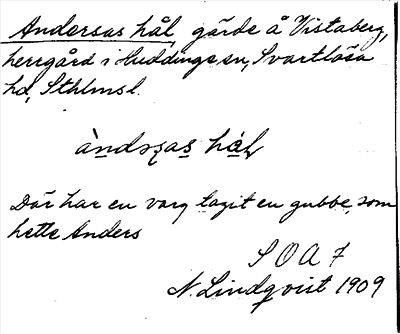 Andersas hål, gärde å Vistaberg,
herrgård i Huddinge sn, Svartlösa
hd, Sthlmsl.
àndsas hål
Där har en varg tagit en gubbe, som
hette Anders
S O A 7
N. Lindqvist 1909